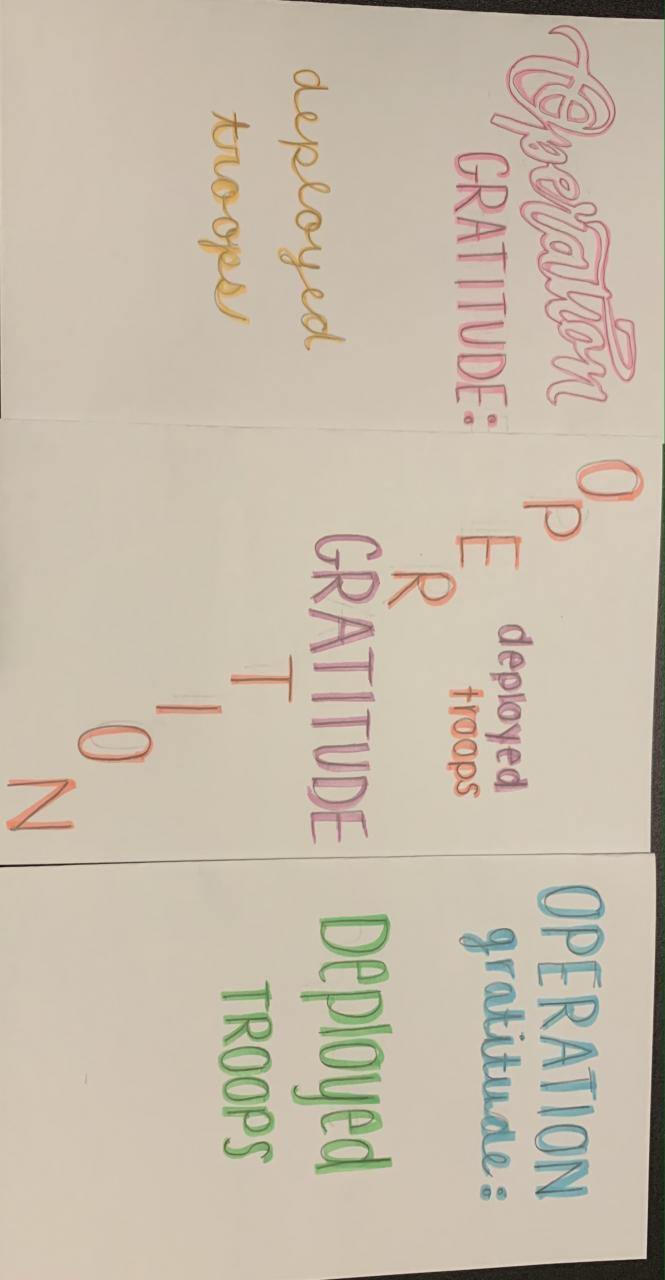 Operation
GRATITUDE:
deployed
troops
O
P
E
deployed
troops
R
GRATITUDE
T
I
O
N
OPERATION
gratitude:
Deployed
TROOPS